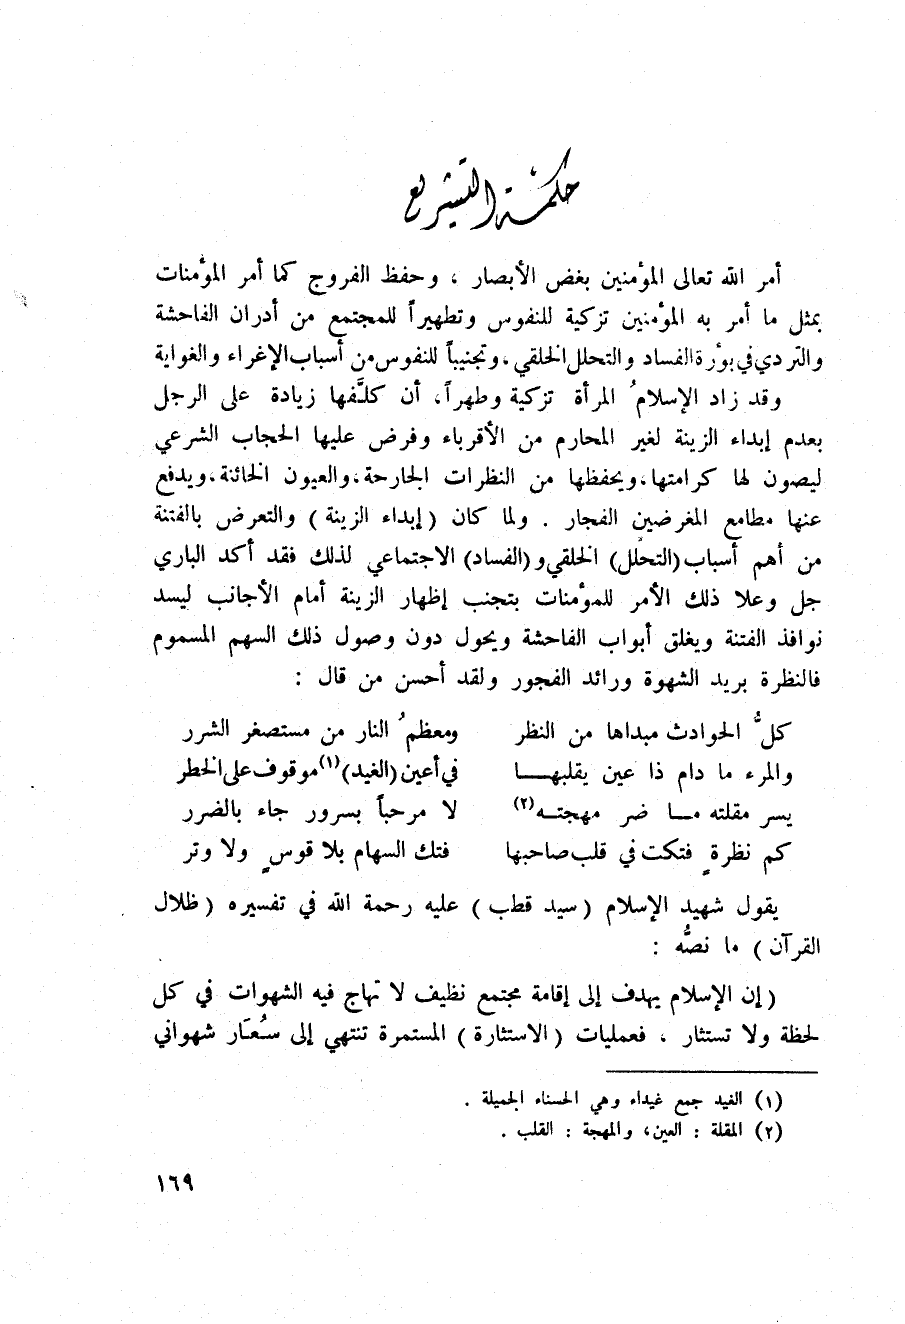 حكمة التشريع
أمر الله تعالى المؤمنين بغض الأبصار ، وحفظ الفروج كما أمر المؤمنات
بمثل ما أمر به المؤمنين تزكية للنفوس وتطهيراً للمجتمع من أدران الفاحشة
والتردي في بؤرة الفساد والتحلل الخلقي ، وتجنيباً للنفوس من أسباب الإغراء والغواية
وقد زاد الإسلامُ المرأة تزكية وطهراً ، أن كلَّفها زيادة على الرجل
بعدم إبداء الزينة لغير المحارم من الأقرباء وفرض عليها الحجاب الشرعي
ليصون لها كرامتها ، ويحفظها من النظرات الجارحة ، والعيون الخائنة ، ويدفع
عنها مطامع المغرضين الفجار . ولما كان ( إبداء الزينة ) والتعرض بالفتنة
من أهم أسباب (التحلل) الخلقي و (الفساد) الاجتماعي لذلك فقد أكد الباري
جل وعلا ذلك الأمر للمؤمنات بتجنب إظهار الزينة أمام الأجانب ليسد
نوافذ الفتنة ويغلق أبواب الفاحشة ويحول دون وصول ذلك السهم المسموم
فالنظرة بريد الشهوة ورائد الفجور ولقد أحسن من قال :
كلُّ الحوادث مبداها من النظر ومعظمُ النار من مستصغر الشرر
والمرء ما دام ذا عين يقلبهـــا في أعين (الغيد)(١) موقوف على الخطر
يسر مقلته مـا ضر مهجتـه(٢) لا مرحباً بسرور جاء بالضرر
كم نظرةٍ فتكت في قلب صاحبها فتك السهام بلا قوسٍ ولا وتر
يقول شهيد الإسلام ( سيد قطب ) عليه رحمة الله في تفسيره ( ظلال
القرآن ) ما نصُّه :
( إن الإسلام يهدف إلى إقامة مجتمع نظيف لا تهاج فيه الشهوات في كل
لحظة ولا تستثار ، فعمليات ( الاستثارة ) المستمرة تنتهي إلى سُعَار شهواني
(١) الغيد جمع غيداء وهي الحسناء الجميلة .
(٢) المقلة : العين ، والمهجة : القلب .
١٦٩